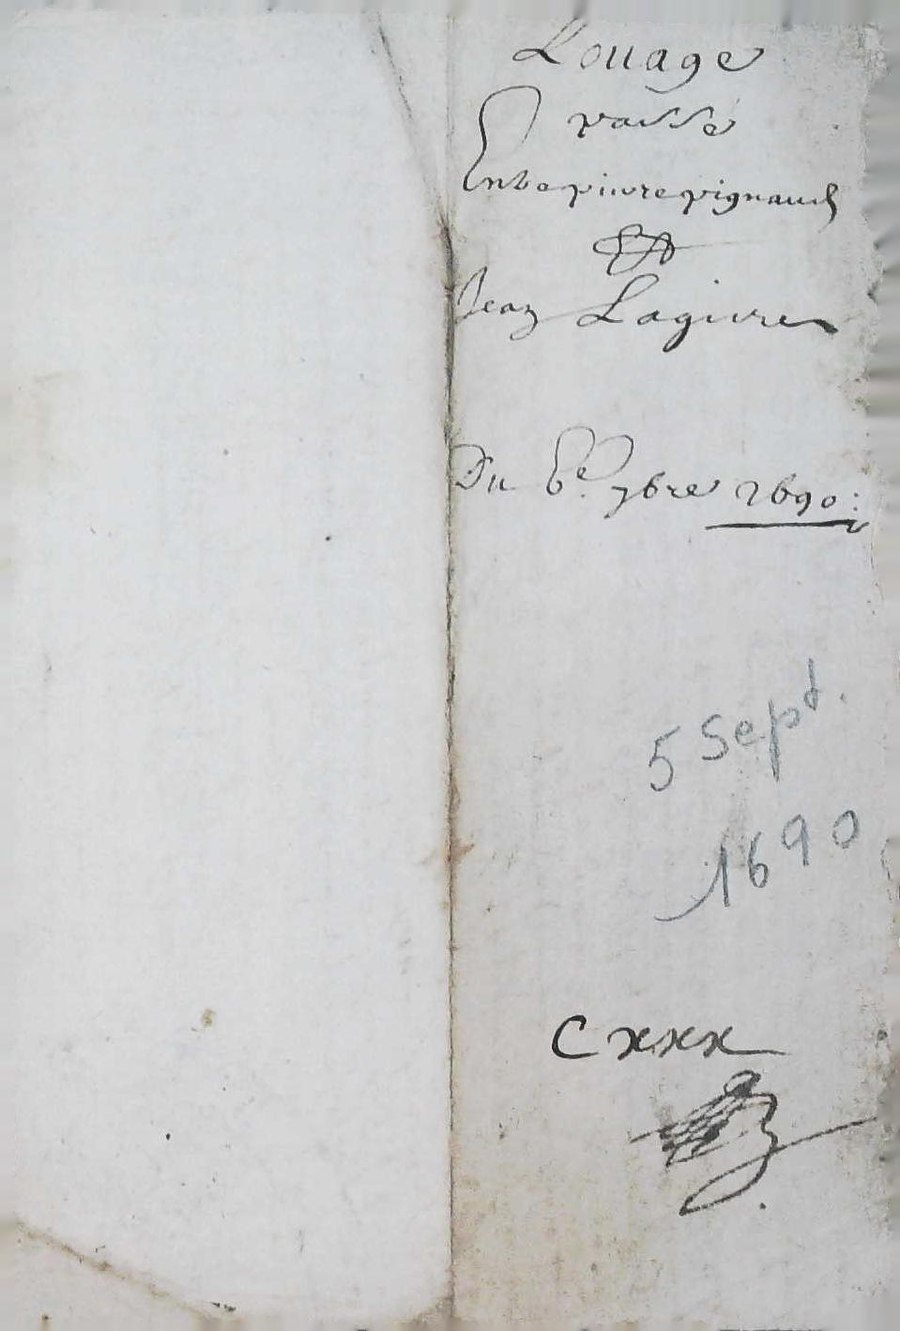 Louage
passé
Entre pierre pignaud
Et
Jean Lagiere
Du 6e. 7bre 1690:
5 Sept.
1690
Cxxx